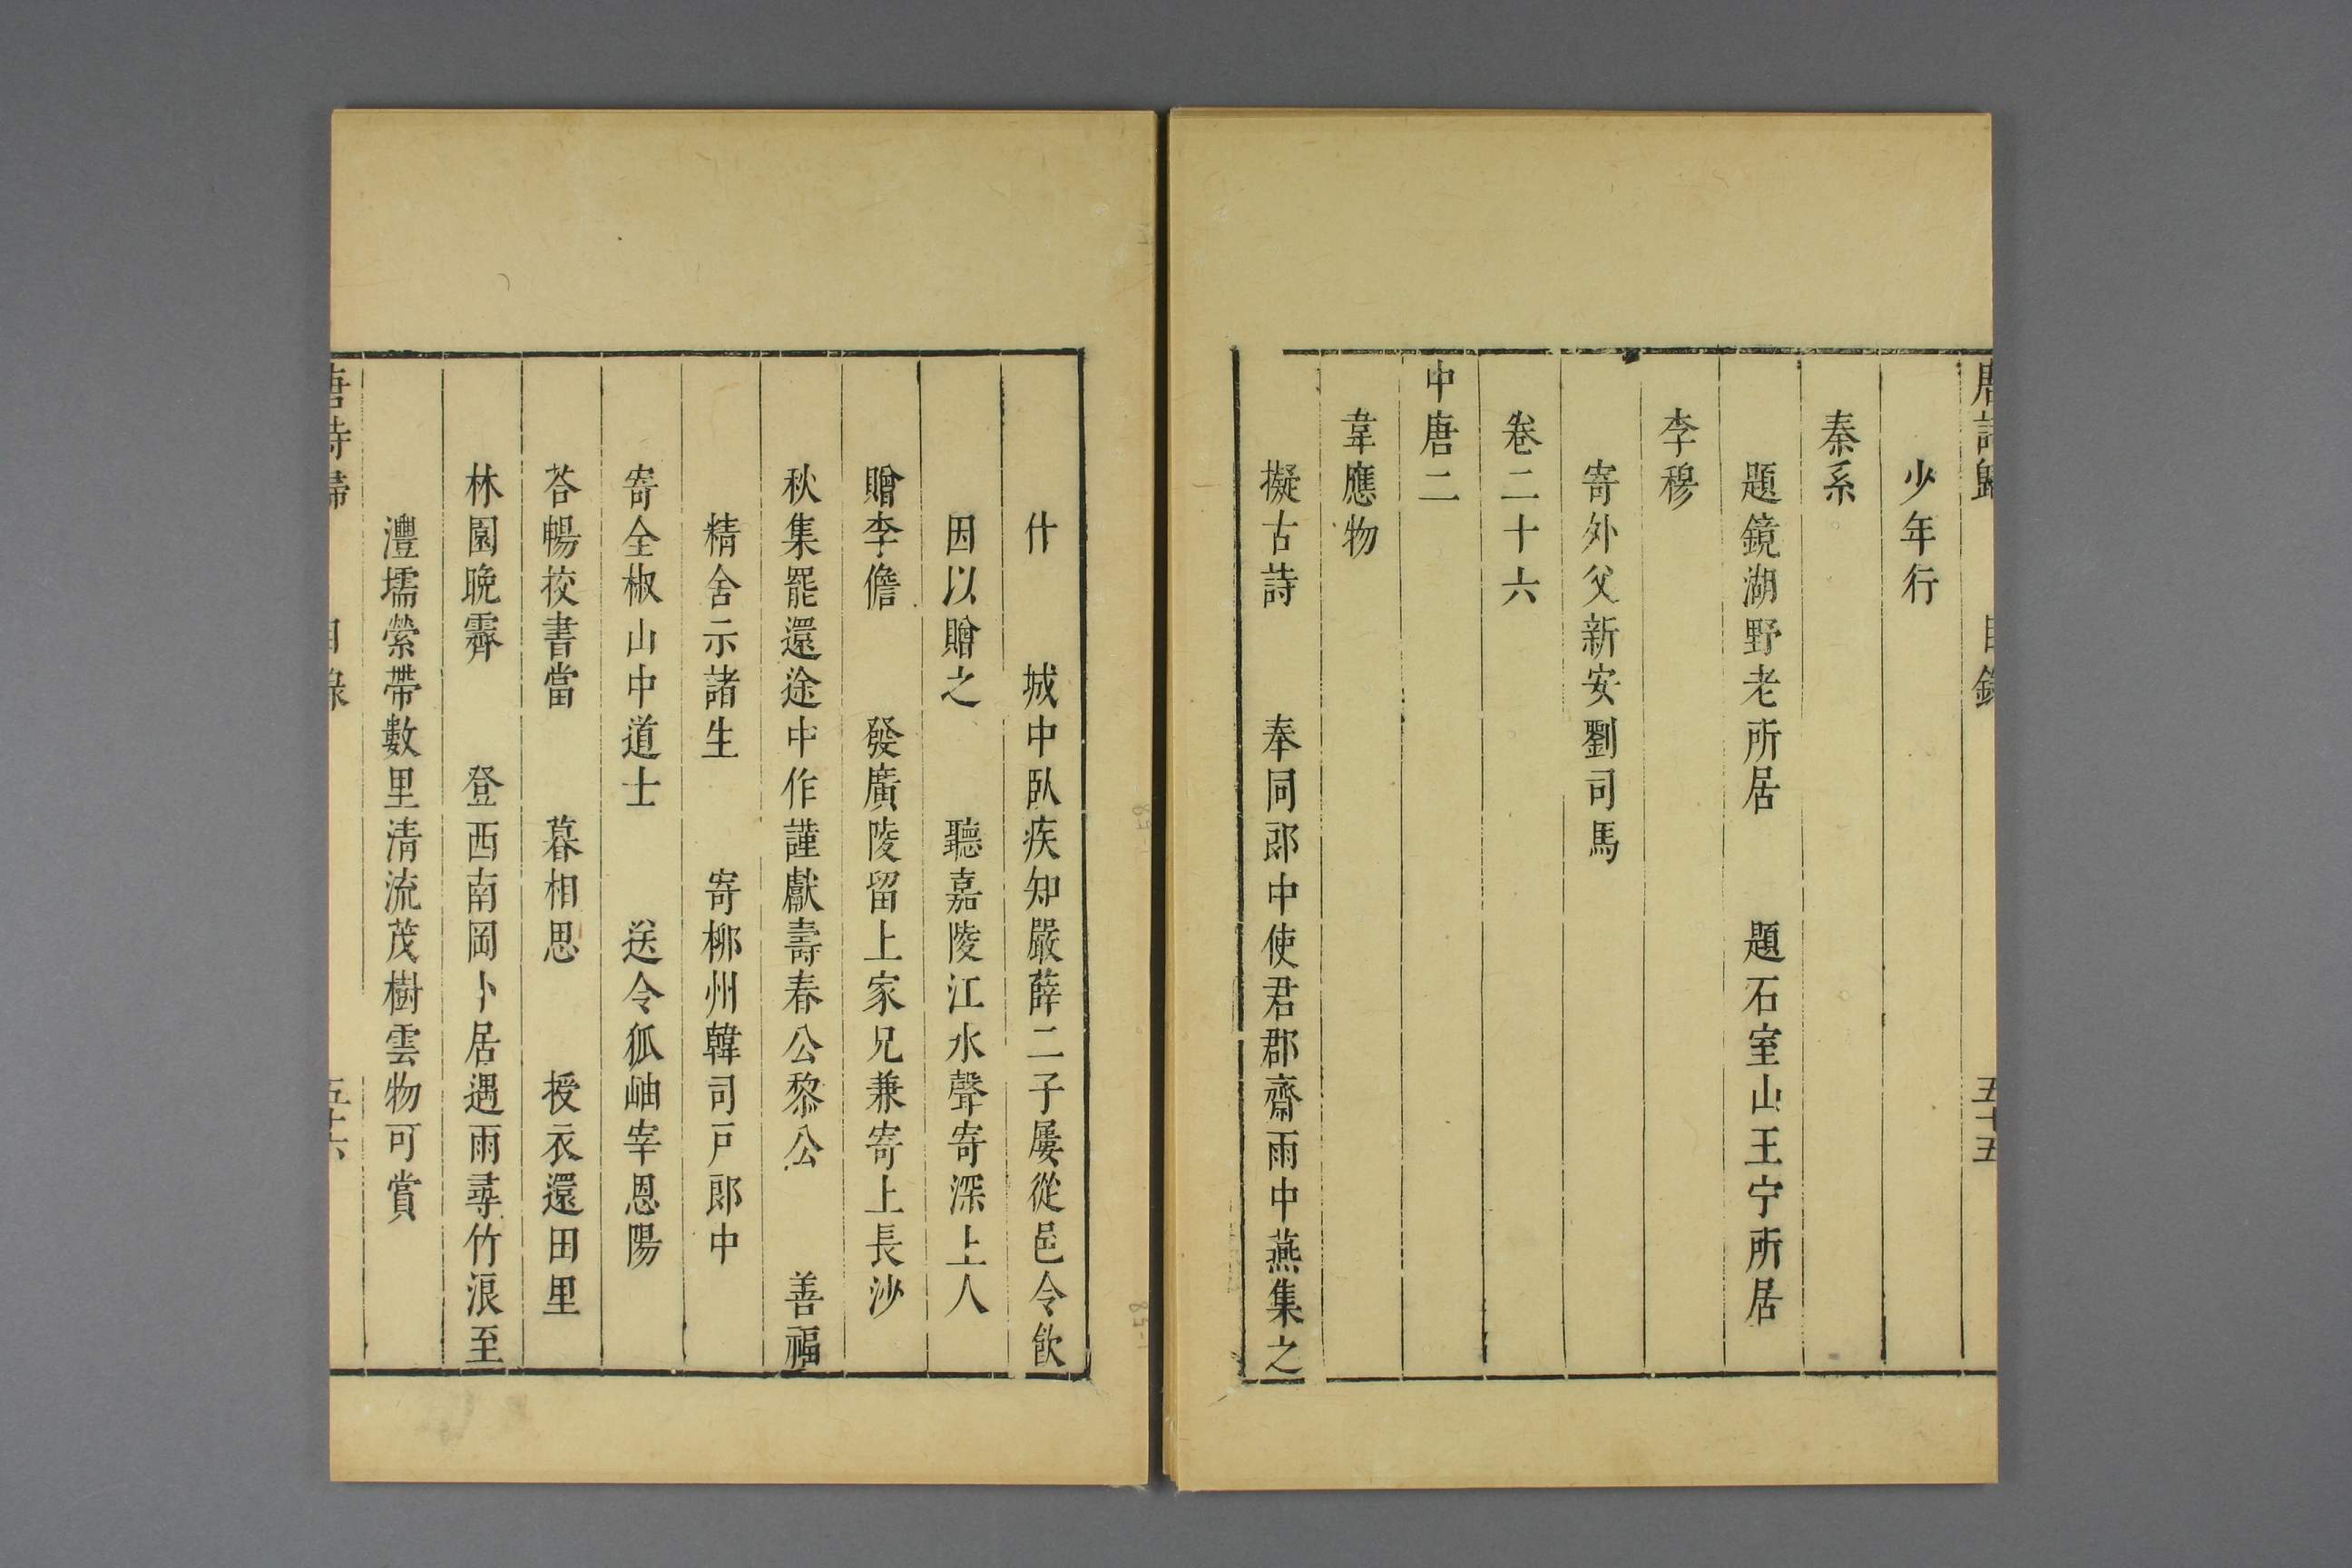 唐詩歸 目錄 五十五
少年行
秦系
題鏡湖野老所居 題石室山王宁所居
李穆
寄外父新安劉司馬
卷二十六
中唐二
韋應物
擬古詩 奉同郎中使君郡齋雨中燕集之
什 城中臥疾知嚴薛二子屢從邑令飲
因以贈之 聽嘉陵江水聲寄深上人
贈李儋 發廣陵留上家兄兼寄上長沙
秋集罷還途中作謹獻壽春公黎公 善福
精舍示諸生 寄柳州韓司戸郎中
寄全椒山中道士 送令狐岫宰恩陽
荅暢挍書當 暮相思 授衣還田里
林園晩霽 登西南岡卜居遇雨尋竹浪至
灃壖縈帶數里清流茂樹雲物可賞
唐詩歸 目錄 五十六